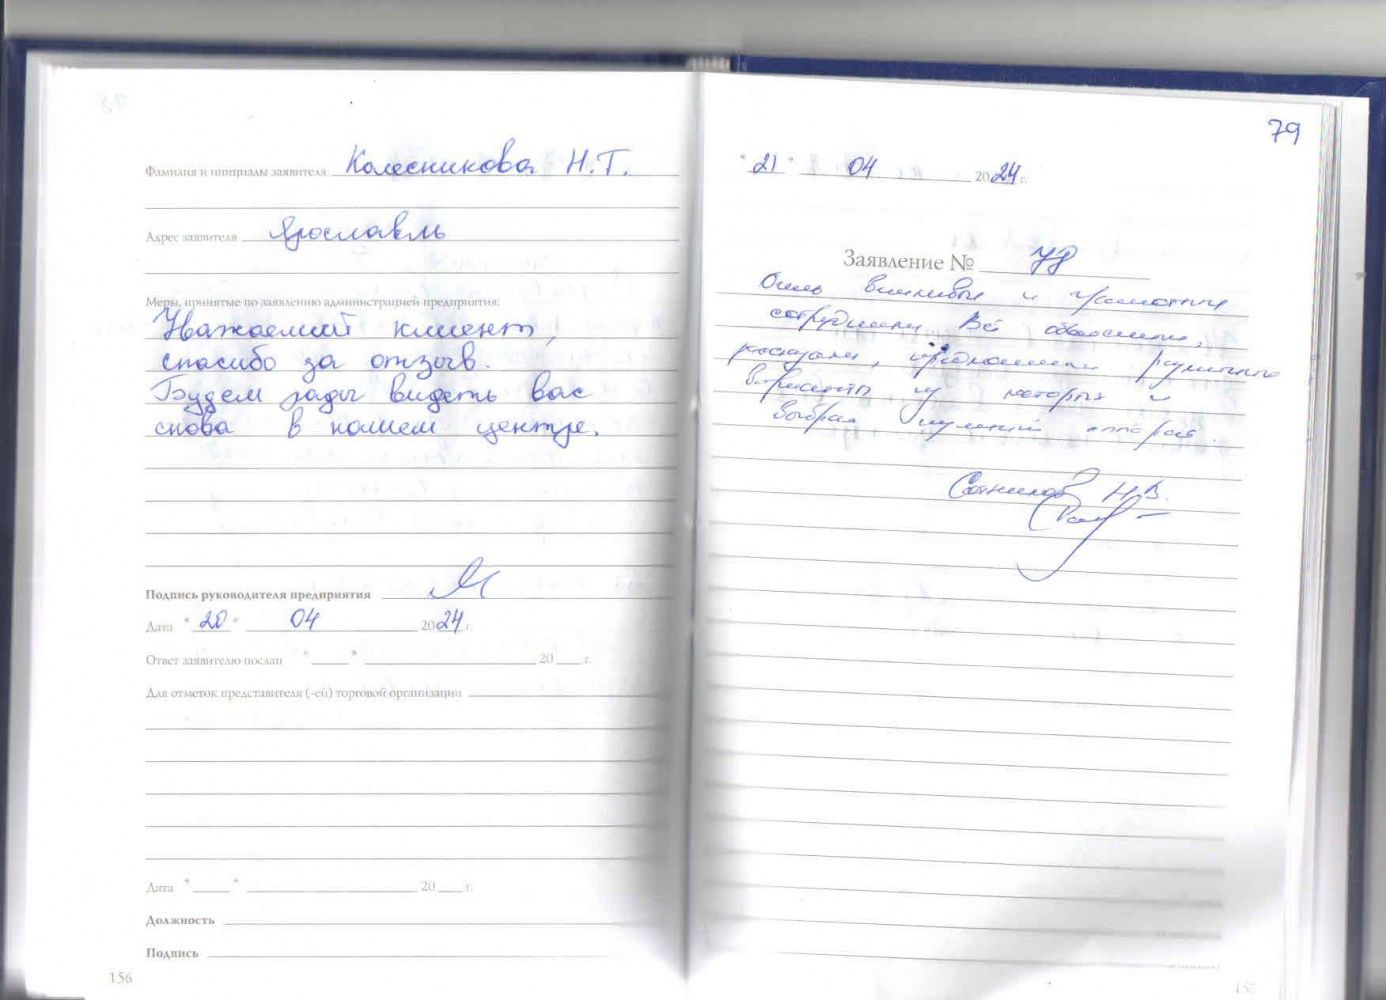 Фамилия и инициалы заявителя Колесникова Н.Т.
Адрес заявителя Ярославль
Меры, принятые по заявлению администрацией предприятия:
Уважаемый клиент,
спасибо за отзыв.
Будем рады видеть вас
снова в нашем центре.
Подпись руководителя предприятия
Дата "20" 04 2024 г.
Ответ заявителю послан "___" ______ 20___ г.
Для отметок представителя (-ей) торговой организации
Дата "___" ______ 20___ г.
Должность
Подпись
156
79
"21" 04 2024 г.
Заявление № 78
Очень вежливые и грамотные
сотрудники. Всё объяснили,
рассказали, предложили различные
варианты из которых и
выбрал слуховой аппарат.
Н.В.